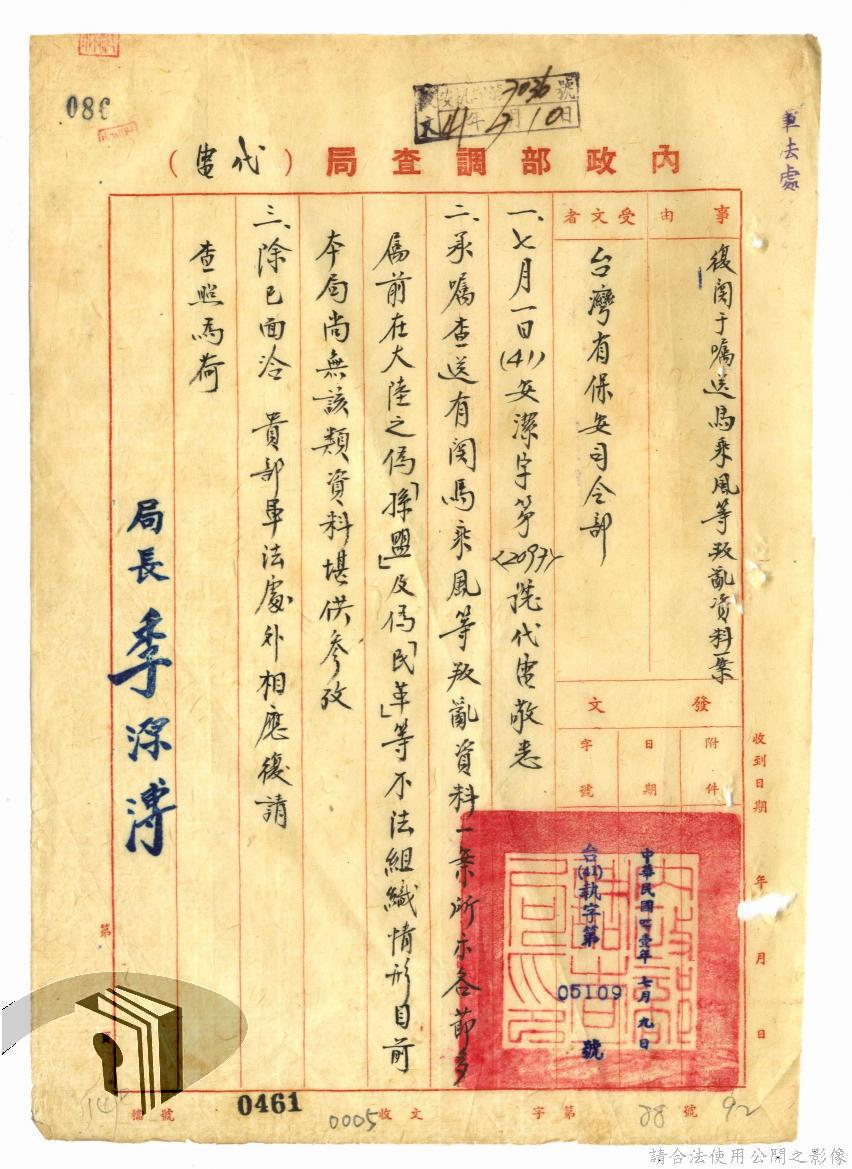 086
軍法處
文 41年7月10日
內政部調查局（代電）
事由
復関于嘱送馬乘風等叛亂資料一案
受文者
台灣省保安司令部
發文
附件
日期
中華民國四十壹年七月九日
字號
台(41)執字第05109號
收到日期 年 月 日
一、七月一日(41)安潔字第〈2097〉號代電敬悉
二、承嘱查送有関馬乘風等叛亂資料一案所示各節多
屬前在大陸之偽「孫盟」及偽「民革」等不法組織情形目前
本局尚無該類資料堪供參攷
三、除已面洽 貴部軍法處外相應復請
查照為荷
局長 季源溥
第 頁
檔號
0461
0005
收文 字第 88 號
92
請合法使用公開之影像